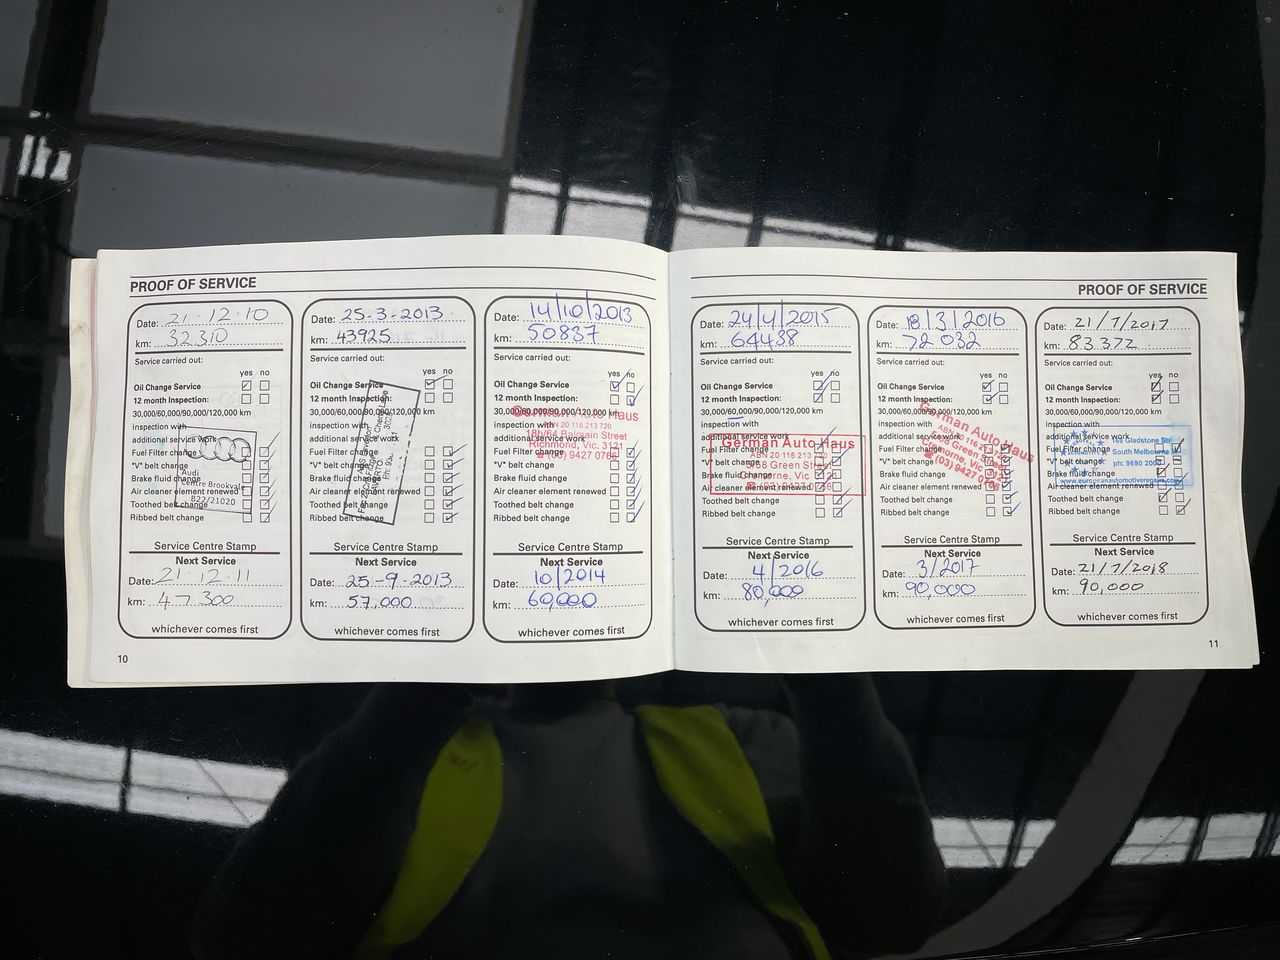 PROOF OF SERVICE
Date: 21.12.10
km: 32310
Service carried out:
yes no
Oil Change Service
12 month Inspection:
30,000/60,000/90,000/120,000 km
inspection with
additional service work
Fuel Filter change
"V" belt change
Brake fluid change
Air cleaner element renewed
Toothed belt change
Ribbed belt change
Audi
Centre Brookvale
Service Centre Stamp
Next Service
Date: 21.12.11
km: 47300
whichever comes first
10
Date: 25-3-2013
km: 43925
Service carried out:
yes no
Oil Change Service
12 month Inspection:
30,000/60,000/90,000/120,000 km
inspection with
additional service work
Fuel Filter change
"V" belt change
Brake fluid change
Air cleaner element renewed
Toothed belt change
Ribbed belt change
Service Centre Stamp
Next Service
Date: 25-9-2013
km: 57,000
whichever comes first
Date: 14/10/2013
km: 50837
Service carried out:
yes no
Oil Change Service
12 month Inspection:
30,000/60,000/90,000/120,000 km
inspection with
additional service work
Fuel Filter change
"V" belt change
Brake fluid change
Air cleaner element renewed
Toothed belt change
Ribbed belt change
German Auto Haus
ABN 20 116 213 720
18b/64 Balmain Street
Richmond, Vic. 3121
(03) 9427 0766
Service Centre Stamp
Next Service
Date: 10/2014
km: 60,000
whichever comes first
PROOF OF SERVICE
Date: 24/4/2015
km: 64438
Service carried out:
yes no
Oil Change Service
12 month Inspection:
30,000/60,000/90,000/120,000 km
inspection with
additional service work
Fuel Filter change
"V" belt change
Brake fluid change
Air cleaner element renewed
Toothed belt change
Ribbed belt change
German Auto Haus
ABN 20 116 213 720
Green Street
Cremorne, Vic
Service Centre Stamp
Next Service
Date: 4/2016
km: 80,000
whichever comes first
Date: 18/3/2016
km: 72 032
Service carried out:
yes no
Oil Change Service
12 month Inspection:
30,000/60,000/90,000/120,000 km
inspection with
additional service work
Fuel Filter change
"V" belt change
Brake fluid change
Air cleaner element renewed
Toothed belt change
Ribbed belt change
German Auto Haus
Green Street
Cremorne, Vic
(03) 9427 0766
Service Centre Stamp
Next Service
Date: 3/2017
km: 90,000
whichever comes first
Date: 21/7/2017
km: 83 372
Service carried out:
yes no
Oil Change Service
12 month Inspection:
30,000/60,000/90,000/120,000 km
inspection with
additional service work
Fuel Filter change
"V" belt change
Brake fluid change
Air cleaner element renewed
Toothed belt change
Ribbed belt change
Gladstone
South Melbourne
ph: 9690
Service Centre Stamp
Next Service
Date: 21/7/2018
km: 90,000
whichever comes first
11